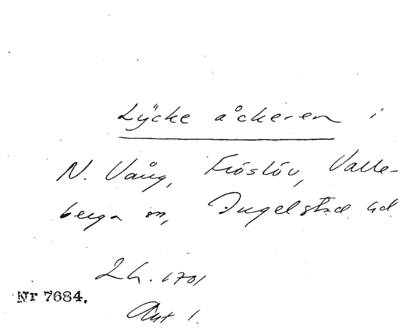 Lÿcke åckeren i
N. Vång, Fröslöv, Valle-
berga sn, Ingelstad hd
Lh. 1701
Akt 1.
Nr 7684.